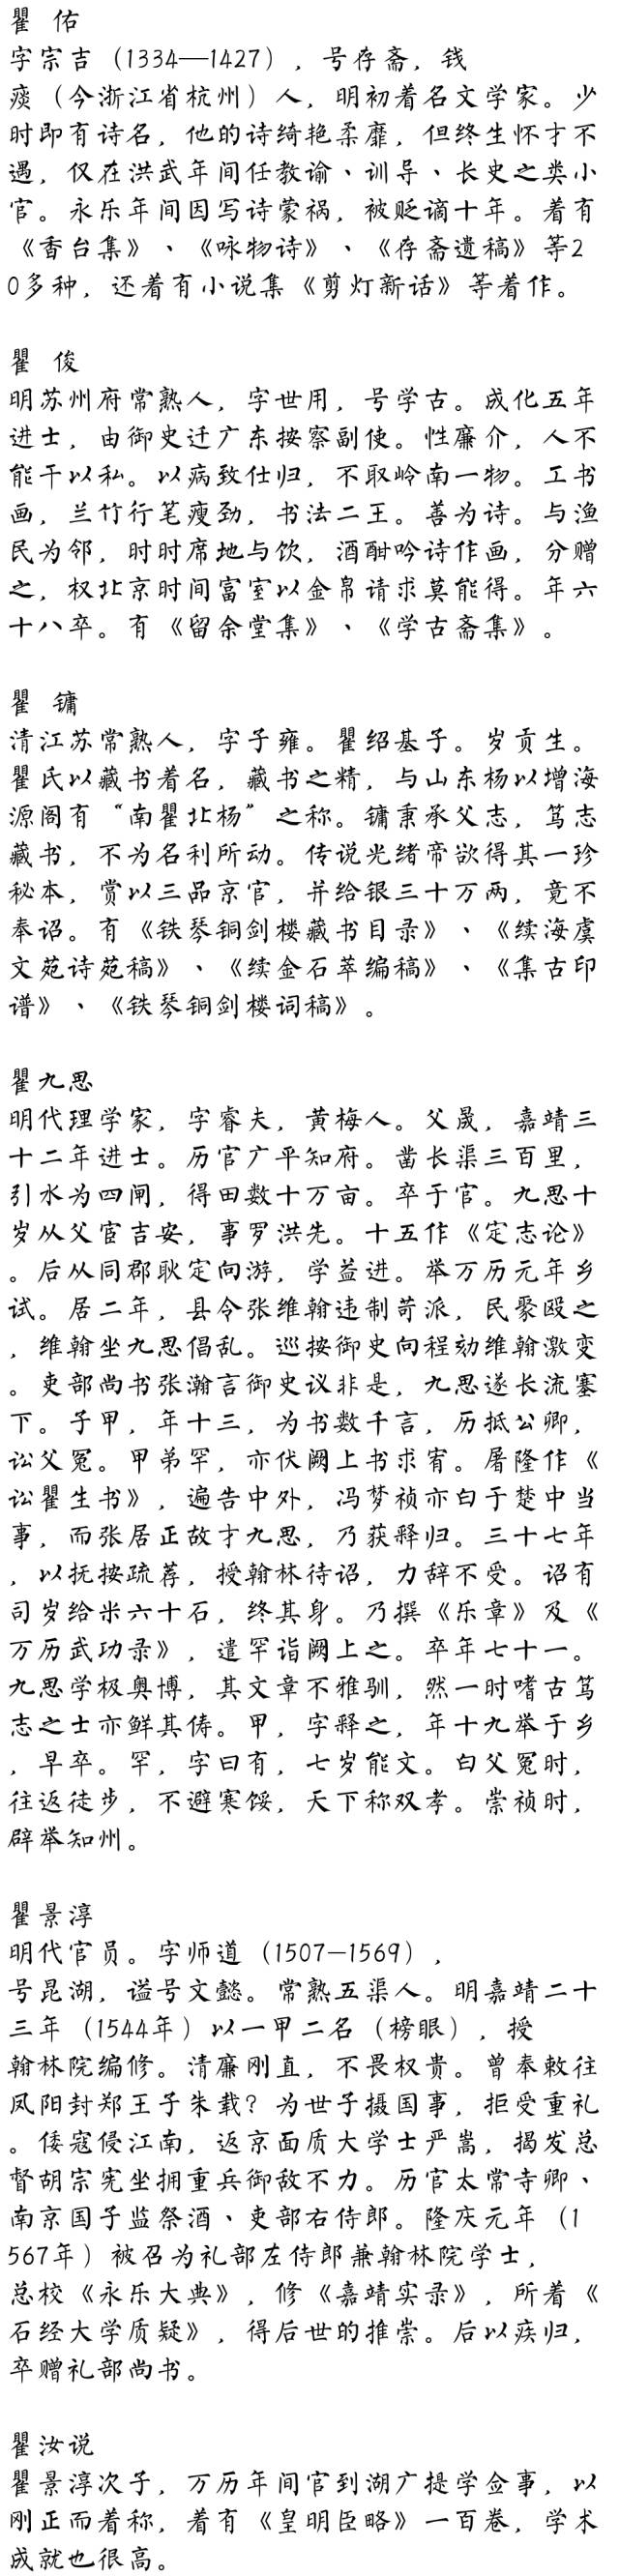 瞿 佑
字宗吉（1334—1427），号存斋，钱
痰（今浙江省杭州）人，明初着名文学家。少
时即有诗名，他的诗绮艳柔靡，但终生怀才不
遇，仅在洪武年间任教谕、训导、长史之类小
官。永乐年间因写诗蒙祸，被贬谪十年。着有
《香台集》、《咏物诗》、《存斋遗稿》等2
0多种，还着有小说集《剪灯新话》等着作。
瞿 俊
明苏州府常熟人，字世用，号学古。成化五年
进士，由御史迁广东按察副使。性廉介，人不
能干以私。以病致仕归，不取岭南一物。工书
画，兰竹行笔瘦劲，书法二王。善为诗。与渔
民为邻，时时席地与饮，酒酣吟诗作画，分赠
之，权北京时间富室以金帛请求莫能得。年六
十八卒。有《留余堂集》、《学古斋集》。
瞿 镛
清江苏常熟人，字子雍。瞿绍基子。岁贡生。
瞿氏以藏书着名，藏书之精，与山东杨以增海
源阁有“南瞿北杨”之称。镛秉承父志，笃志
藏书，不为名利所动。传说光绪帝欲得其一珍
秘本，赏以三品京官，并给银三十万两，竟不
奉诏。有《铁琴铜剑楼藏书目录》、《续海虞
文苑诗苑稿》、《续金石萃编稿》、《集古印
谱》、《铁琴铜剑楼词稿》。
瞿九思
明代理学家，字睿夫，黄梅人。父晟，嘉靖三
十二年进士。历官广平知府。凿长渠三百里，
引水为四闸，得田数十万亩。卒于官。九思十
岁从父宦吉安，事罗洪先。十五作《定志论》
。后从同郡耿定向游，学益进。举万历元年乡
试。居二年，县令张维翰违制苛派，民聚殴之
，维翰坐九思倡乱。巡按御史向程劾维翰激变
。吏部尚书张瀚言御史议非是，九思遂长流塞
下。子甲，年十三，为书数千言，历抵公卿，
讼父冤。甲弟罕，亦伏阙上书求宥。屠隆作《
讼瞿生书》，遍告中外，冯梦祯亦白于楚中当
事，而张居正故才九思，乃获释归。三十七年
，以抚按疏荐，授翰林待诏，力辞不受。诏有
司岁给米六十石，终其身。乃撰《乐章》及《
万历武功录》，遣罕诣阙上之。卒年七十一。
九思学极奥博，其文章不雅驯，然一时嗜古笃
志之士亦鲜其俦。甲，字释之，年十九举于乡
，早卒。罕，字曰有，七岁能文。白父冤时，
往返徒步，不避寒馁，天下称双孝。崇祯时，
辟举知州。
瞿景淳
明代官员。字师道（1507—1569），
号昆湖，谥号文懿。常熟五渠人。明嘉靖二十
三年（1544年）以一甲二名（榜眼），授
翰林院编修。清廉刚直，不畏权贵。曾奉敕往
凤阳封郑王子朱载？为世子摄国事，拒受重礼
。倭寇侵江南，返京面质大学士严嵩，揭发总
督胡宗宪坐拥重兵御敌不力。历官太常寺卿、
南京国子监祭酒、吏部右侍郎。隆庆元年（1
567年）被召为礼部左侍郎兼翰林院学士，
总校《永乐大典》，修《嘉靖实录》，所着《
石经大学质疑》，得后世的推崇。后以疾归，
卒赠礼部尚书。
瞿汝说
瞿景淳次子，万历年间官到湖广提学佥事，以
刚正而着称，着有《皇明臣略》一百卷，学术
成就也很高。